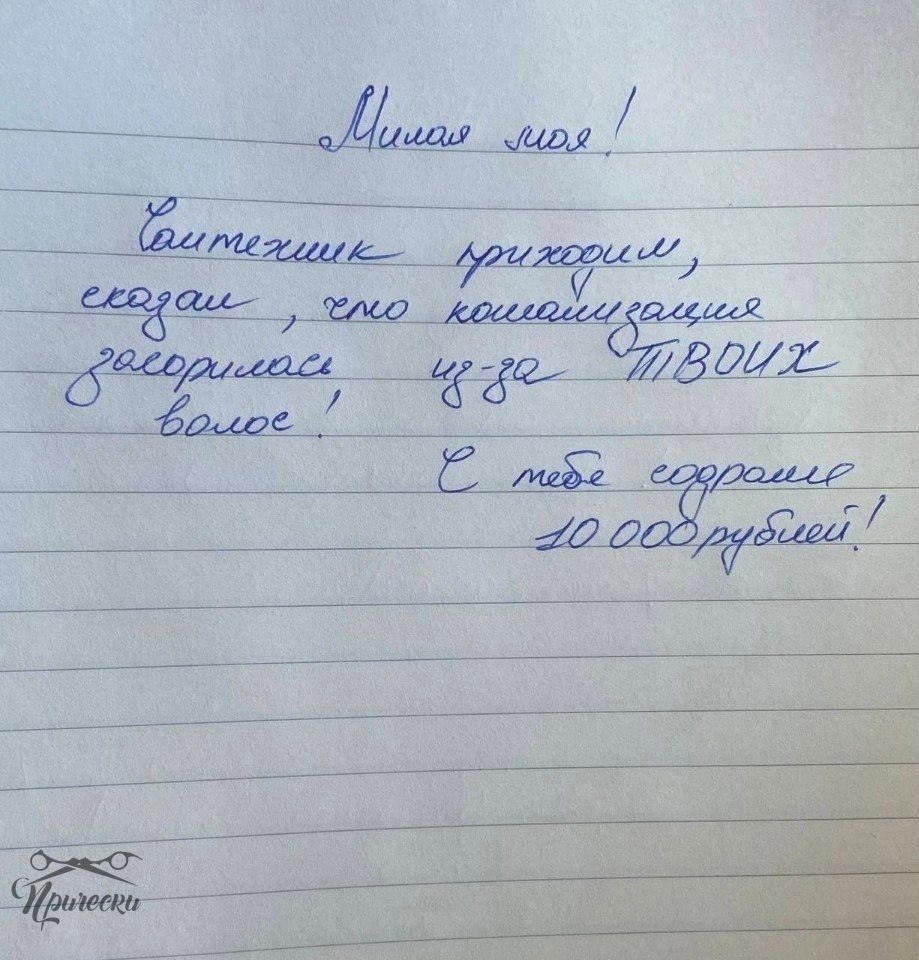 Милая моя!
Сантехник приходил,
сказал, что канализация
засорилась из-за ТВОИХ
волос!
С тебя содрали
10 000 рублей!
Прически